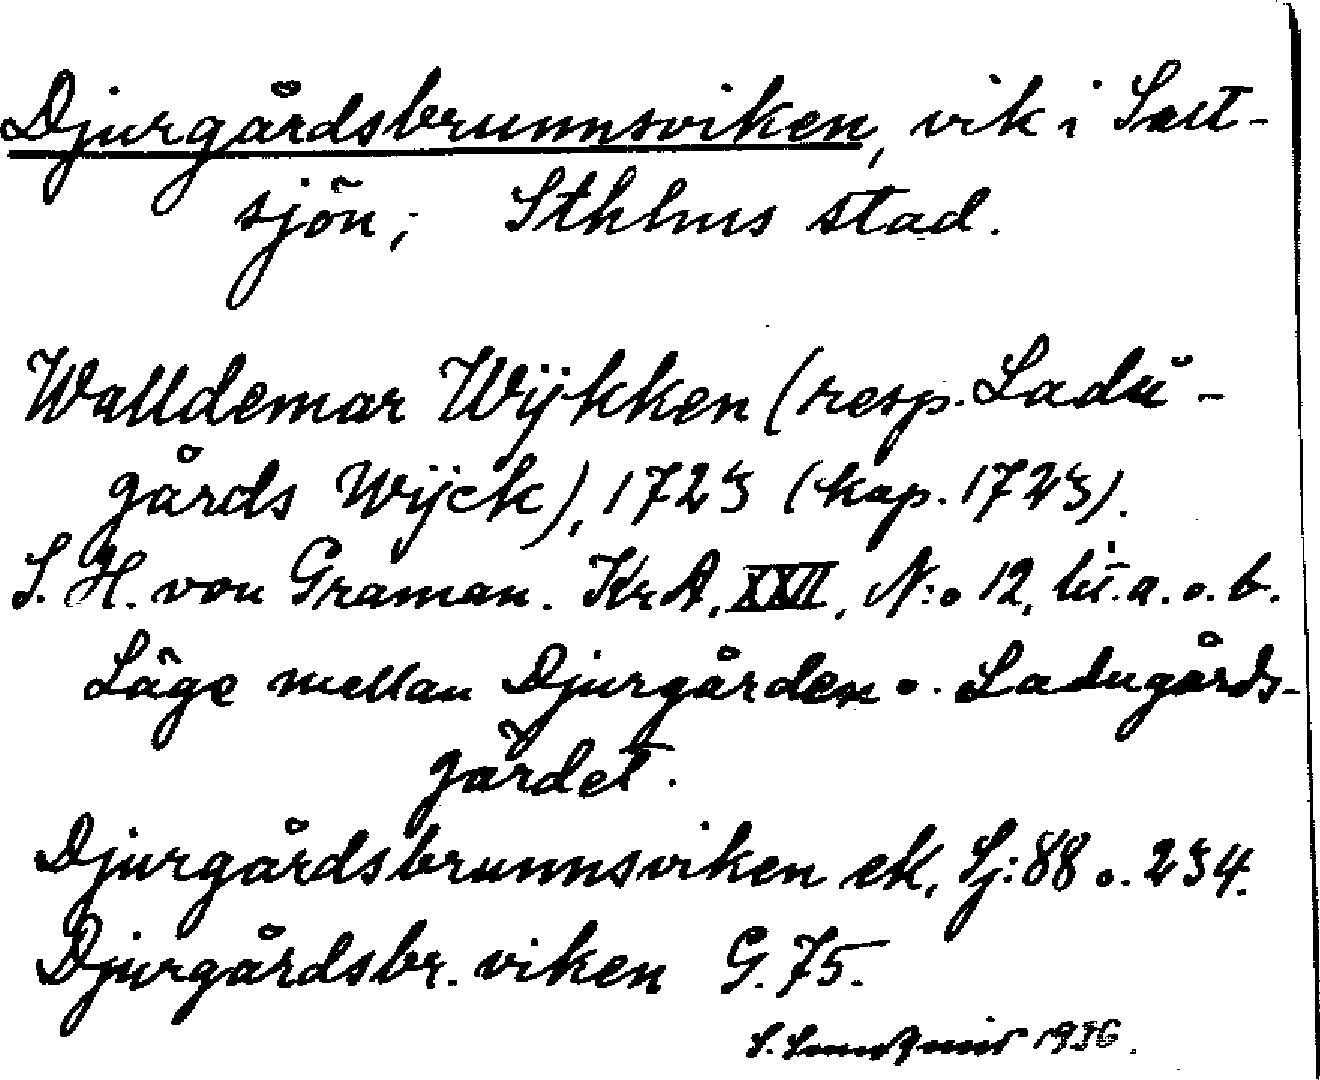 Djurgårdsbrunnsviken, vik i Salt-
sjön; Sthlms stad.
Walldemar Wÿkken (resp. Ladŭ-
gårds Wÿck), 1723 (kop. 1723).
S. H. von Graman. KrA, XXII, N:o 12, litt. a. o. b.
Läge mellan Djurgården o. Ladugårds-
gärdet.
Djurgårdsbrunnsviken ek, Sj:88 o. 234.
Djurgårdsbr. viken G. 75.
S. 1936.